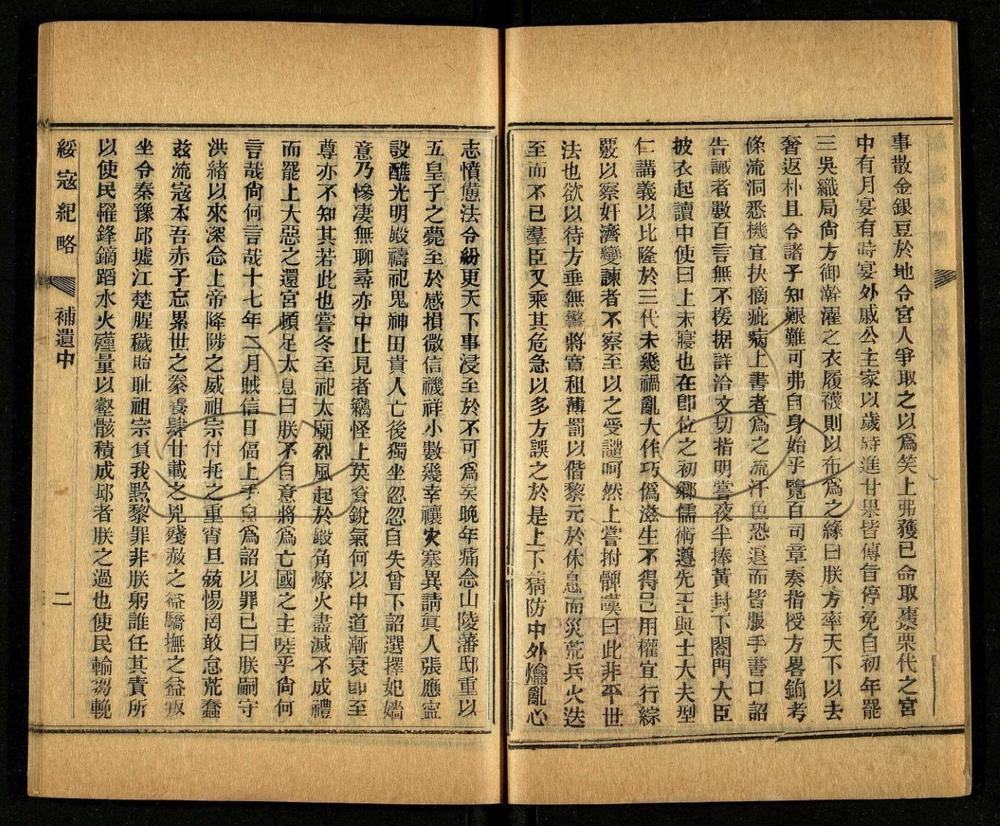 事散金銀豆於地令宮人爭取之以爲笑上弗獲已命取棗栗代之宮
中有月宴有時宴外戚公主家以歲時進甘果皆傳旨停免自初年罷
三吳織局尙方御澣濯之衣履襪則以布爲之緣曰朕方率天下以去
奢返朴且令諸子知艱難可弗自身始乎覽百司章奏指授方畧鉤考
條流洞悉機宜抉摘疵病上書者爲之流汗色恐退而皆脹手書口詔
告誡者數百言無不援据詳洽文切指明嘗夜半捧黃封下閣門大臣
披衣起讀中使曰上未寢也在卽位之初鄉儒術遵先王與士大夫型
仁講義以比隆於三代未幾禍亂大作巧僞滋生不得已用權宜行綜
覈以察奸濟變諫者不察至以之受譴呵然上嘗拊髀嘆曰此非平世
法也欲以待方垂無警將寬租薄罰以偕黎元於休息而災荒兵火迭
至而不已羣臣又乘其危急以多方誤之於是上下病防中外爚亂心
志憤懣法令紛更天下事浸至於不可爲矣晚年痛念山陵藩邸重以
五皇子之薨至於感損微信禨祥小數幾幸禳灾塞異請眞人張應寍
設醮光明殿禱祀鬼神田貴人亡後獨坐忽忽自失曾下詔選擇妃嬙
意乃慘凄無聊尋亦中止見者竊怪上英斷銳氣何以中道漸衰卽至
尊亦不知其若此也嘗冬至祀太廟烈風起於殿角燎火盡滅不成禮
而罷上大惡之還宮頓足太息曰朕不自意將爲亡國之主陸乎尙何
言哉尙何言哉十七年二月賊信日偪上手自爲詔以罪己曰朕嗣守
洪緒以來深念上帝降陟之威祖宗付托之重宵旦兢惕罔敢怠荒蠢
玆流寇本吾赤子忘累世之豢養肆廿載之兇殘赦之益驕撫之益叛
坐令秦豫邱墟江楚腥穢貽耻祖宗負我黔黎罪非朕躬誰任其責所
以使民罹鋒鏑蹈水火殣量以壑骸積成邱者朕之過也使民輸芻輓
綏寇紀略 補遺中 二